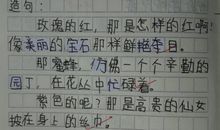 造句：
玫瑰的红，那是怎样的红啊！
像美丽的宝石那样鲜艳夺目。
那蜜蜂，仿佛一个个辛勤的
园丁，在花丛中忙碌着。
紫色的呢？那是高贵的仙女
披在身上的丝巾。